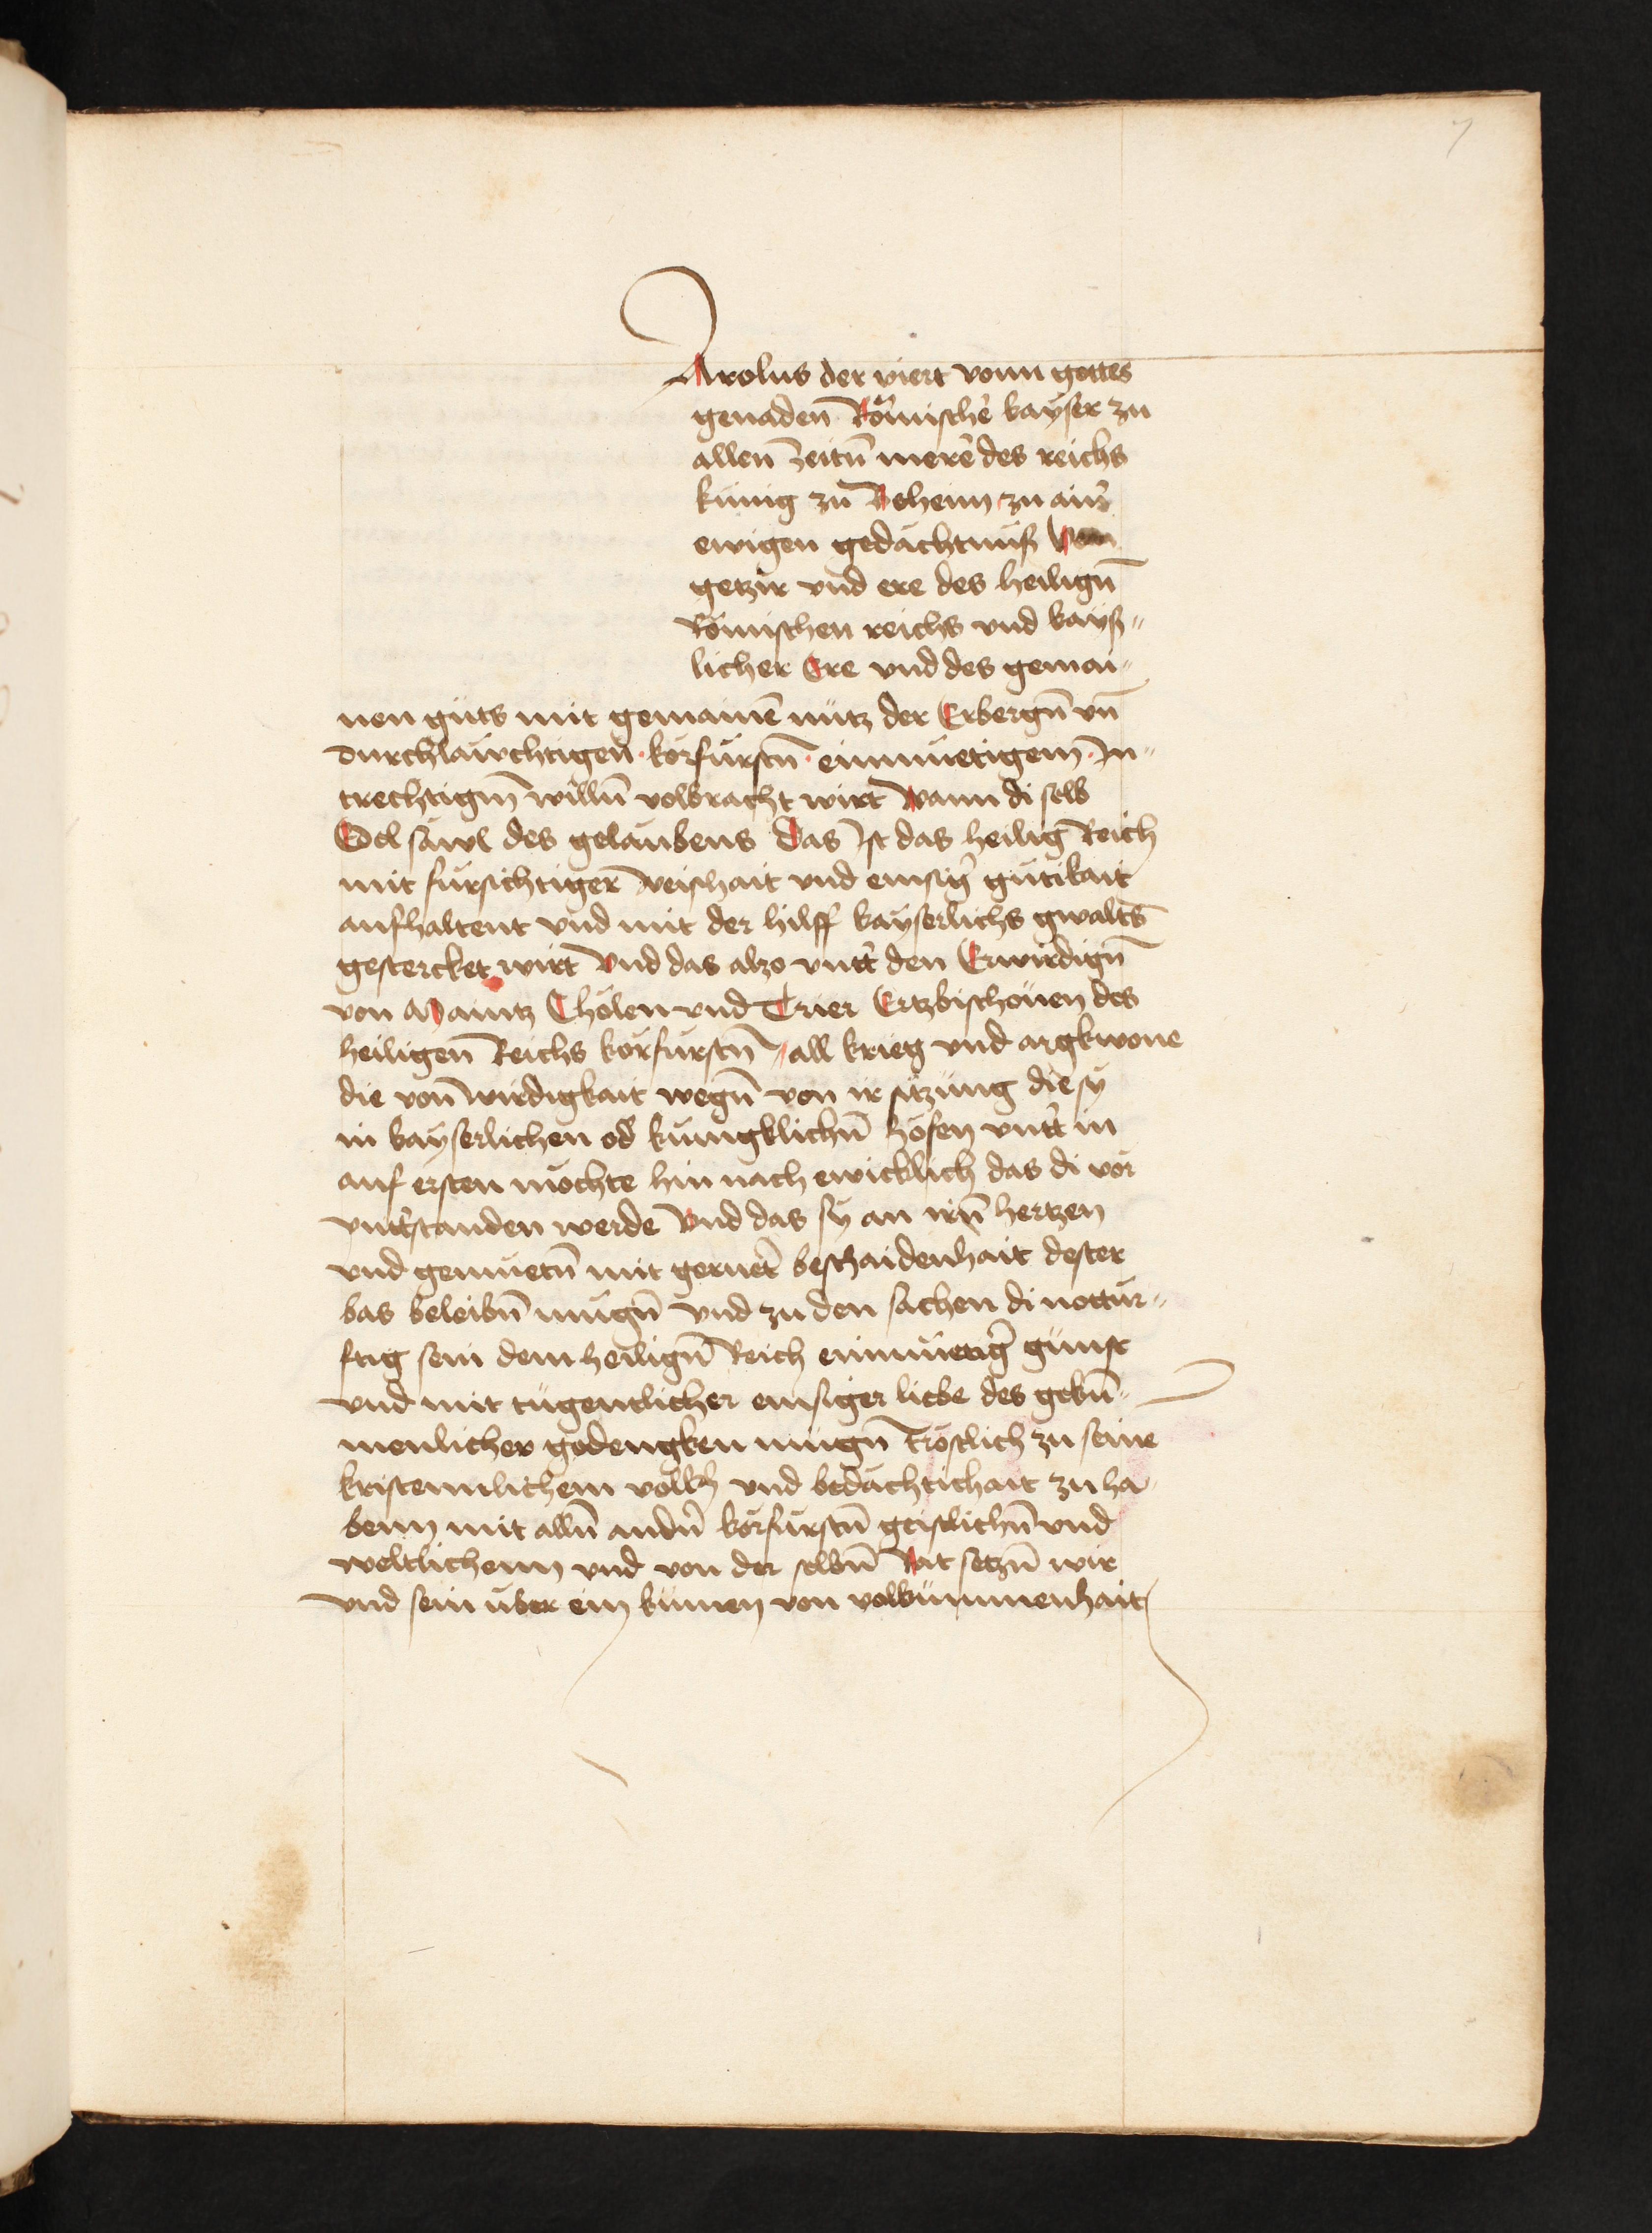 7
Arolus der viert vonn gottes
genaden Römischer̄ kayser zu
allenn Zeitn̄ merer̄ des reichs
kunig zu Beheim zu ain̄
ewigen gedächtnuß Von
getzir vnd ere des heilign̄
Römischen reichs vnd kayß„
licher Ere vnd des gemai„
nen güts mit gemainē nütz der Erbergn̄ vn̄
durchläwchtigen körfürstn̄ einmuetigem In„
trechtigm̄ willn̄ volbracht wirt Wann di selb
Edel säwl des gelaubens Das Ist das heilig Reich
mit fürsichtiger weishait vnd einsiḡ gütikait
aufhaltent vnd mit der hilff kayserlichs gwalts
gestercket wirt Vnd das alzo vntt̄ den Erwirdign̄
von Maintz Chölen vnd Trier Ertzbischöuen des
heiligen Reichs körfürstn̄ all krieg vnd argkwone
die von wirdigkait wegn̄ von ir sitzung die sy
in kayserlichen od̄ kungklichn̄ höfen vntt̄ in
auf ersten möchte hin nach ewicklich das di vor
vntt̄standen werde Vnd das sy an irn̄ hertzen
vnd gemüetn̄ mit geruet̄ beschaidenhait dester
bas beleibn̄ mügn̄ vnd zu den sachen di nottur„
ftig sein dem heilign̄ Reich einmuetiḡ günst
vnd mit tugentlicher einsiger liebe des gekun̄„
menlicher gedengken mügn̄ tröstlich zu seine
kristennlichem volkh vnd bedächtichait zu ha
benn mit alln̄ andn̄ körfürstn̄ geistlichn̄ vnd
weltlichenn vnd von der selbn̄ Rat setzn̄ wir
vnd sein über ein kumen von volkummenhait